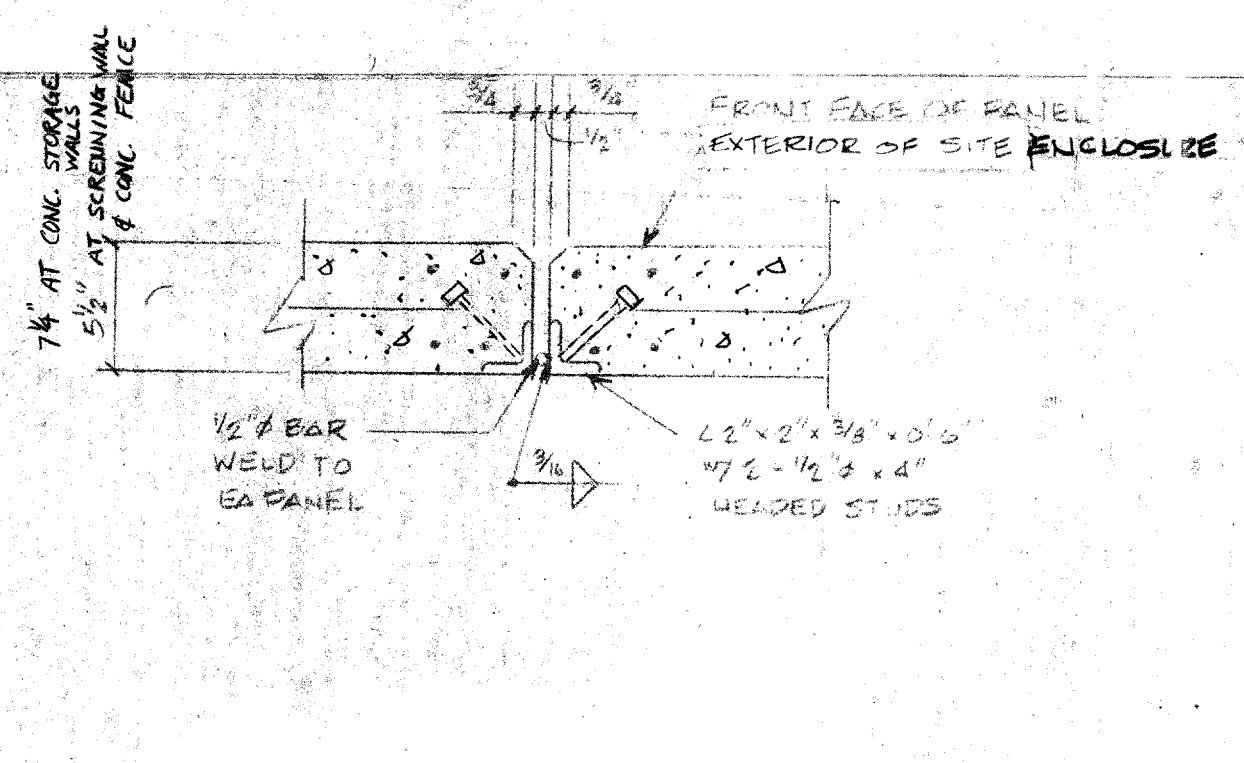 7¼" AT CONC. STORAGE
WALLS
5½" AT SCREENING WALL
& CONC. FENCE
3/4
3/4"
1/2"
FRONT FACE OF PANEL
EXTERIOR OF SITE ENCLOSURE
1/2"⌀ BAR
WELD TO
EA PANEL
3/16
L 2" x 2" x 3/8" x 0'6"
W/ 2 - 1/2"⌀ x 4"
HEADED STUDS